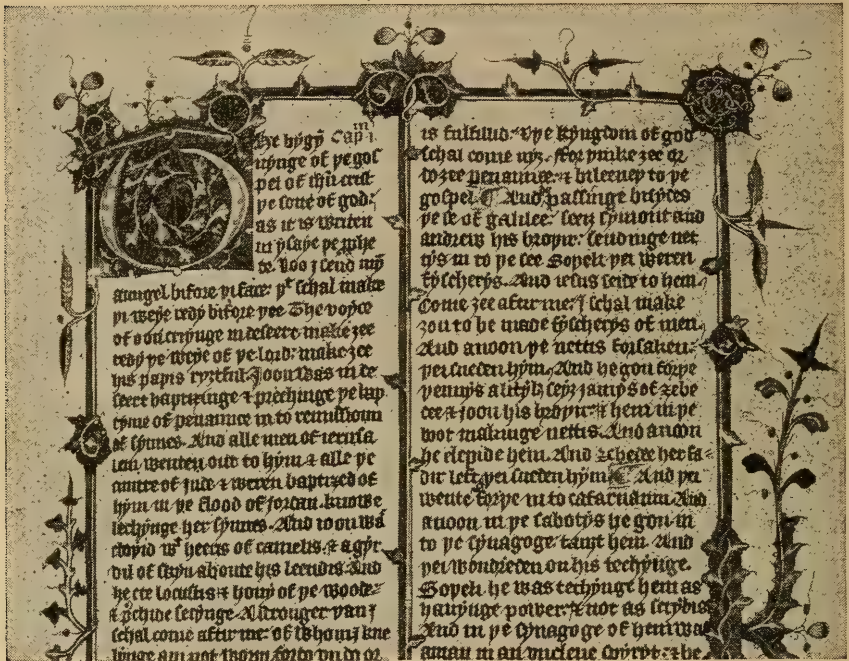 The bygyn Capᵐ i
nynge of þe gos
pel of ihū crist
þe sone of god:
as it is writen
in ysaye þe phe
te. Loo I send my
aungel bifore þi face: þᵗ schal make
þi weye redy bifore þee The voyce
of oon criynge in deseert make ȝee
redy þe weye of þe lord: make ȝee
his paþis ryȝtful Joon was in de
seert baptizinge & prechinge þe bap
tyme of penaunce in to remissioun
of synnes. And alle men of ierusa
lem wenten out to hym & alle þe
cuntre of Jude & weren baptized of
hym in þe flood of jordan. knowe
lechynge her synnes. And ioon was
cloþid wᵗ heeris of camelis. & a gyr
dil of skyn aboute his leendis And
he eet locustis & hony of þe woode.
& pchide seiynge A stronger þan I
schal come aftir me: of whom I kne
linge am not worþi forto vndo or
is fulfillid: þe kyngdom of god
schal come niȝ. ffor þinke ȝee or
do ȝee penaunce & bileeueþ to þe
gospel And passinge bisydes
þe se of galilee. seeȝ symount and
andrew his broþir. sendinge net
tys in to þe see Soþeli þei weren
fyscherys. And iesus seide to hem
Come ȝee aftir me: I schal make
ȝou to be made fyscherys of men.
And anoon þe nettis forsaken:
þei sueden hym. And he gon forþe
þennys a lityl: seyȝ jamys of zebe
dee & joon his broþir & hem in þe
boot makinge nettis. And anoon
he clepide hem. And zebedee her fa
dir left þei sueden hym And þei
wente forþe in to cafarnaum And
anoon in þe sabotys he gon in
to þe synagoge taut hem And
þei wondreden on his techynge.
Soþeli he was techynge hem as
hauynge power & not as scrybis
And in þe synagoge of hem was
a man in an vnclene spiryt & he